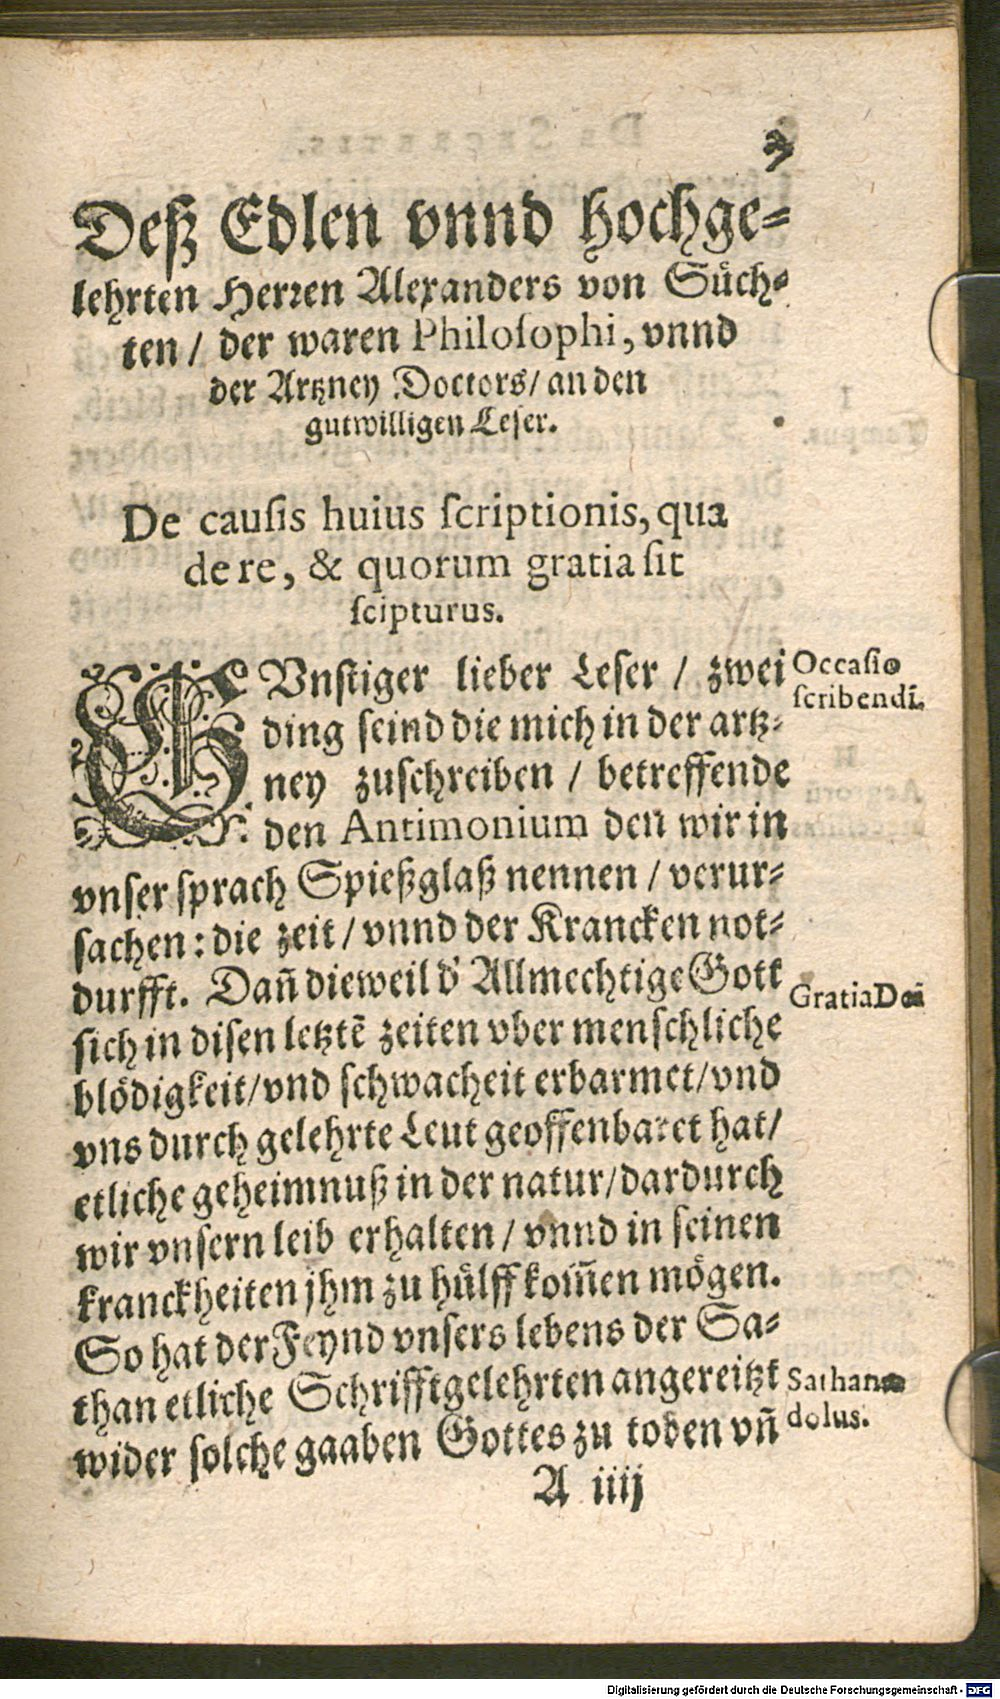 Deß Edlen vnnd hochge-
lehrten Herren Alexanders von Süch-
ten / der waren Philoſophi, vnnd
der Artzney Doctors / an den
gutwilligen Leſer.
De cauſis huius ſcriptionis, qua
de re, & quorum gratia ſit
ſcipturus.
GVnſtiger lieber Leſer / zwei
Occaſio
ſcribendi.
ding ſeind die mich in der artz-
ney zuſchreiben / betreffende
den Antimonium den wir in
vnſer ſprach Spießglaß nennen / verur-
ſachen: die zeit / vnnd der Krancken not-
durfft. Dañ dieweil d' Allmechtige Gott
Gratia Dei
ſich in diſen letztē zeiten vber menſchliche
blödigkeit / vnd ſchwacheit erbarmet / vnd
vns durch gelehrte Leut geoffenbaret hat /
etliche geheimnuß in der natur / dardurch
wir vnſern leib erhalten / vnnd in ſeinen
kranckheiten jhm zu hülff kom̃en mögen.
So hat der Feynd vnſers lebens der Sa-
than etliche Schrifftgelehrten angereitzt
Sathanæ
dolus.
wider ſolche gaaben Gottes zu toben vñ
A iiij
Digitalisierung gefördert durch die Deutsche Forschungsgemeinschaft - DFG